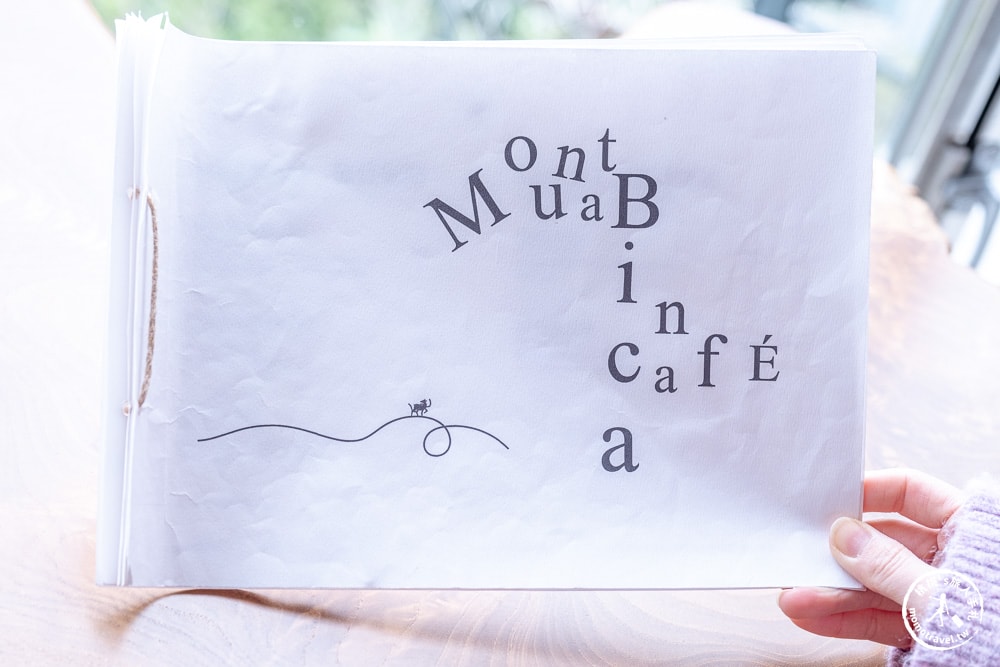 Mont
uaB
i
n
cafÉ
a
momstravel.tw